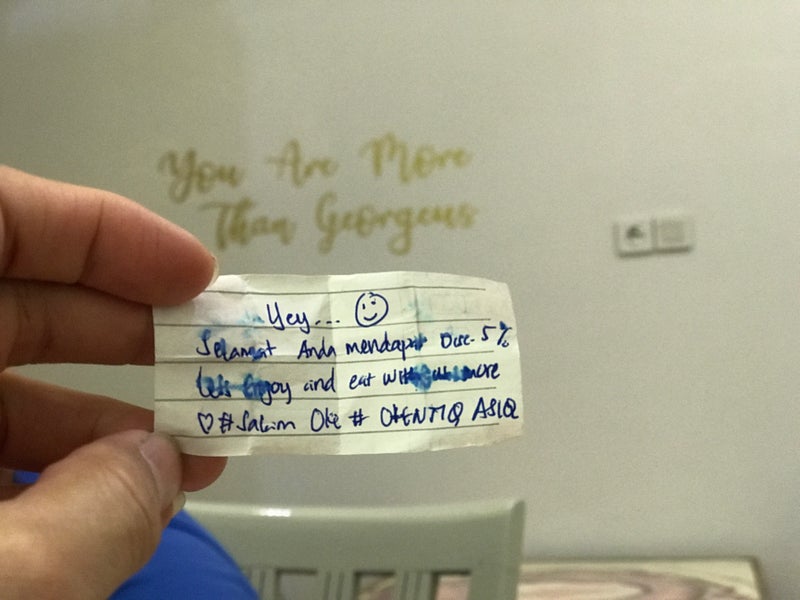 You Are More
Than Georgeus
Yey...
Selamat Anda mendapat Disc. 5%
Let's Enjoy and eat with us more
♡ #Sakim Oke # OKENTIQ ASIQ